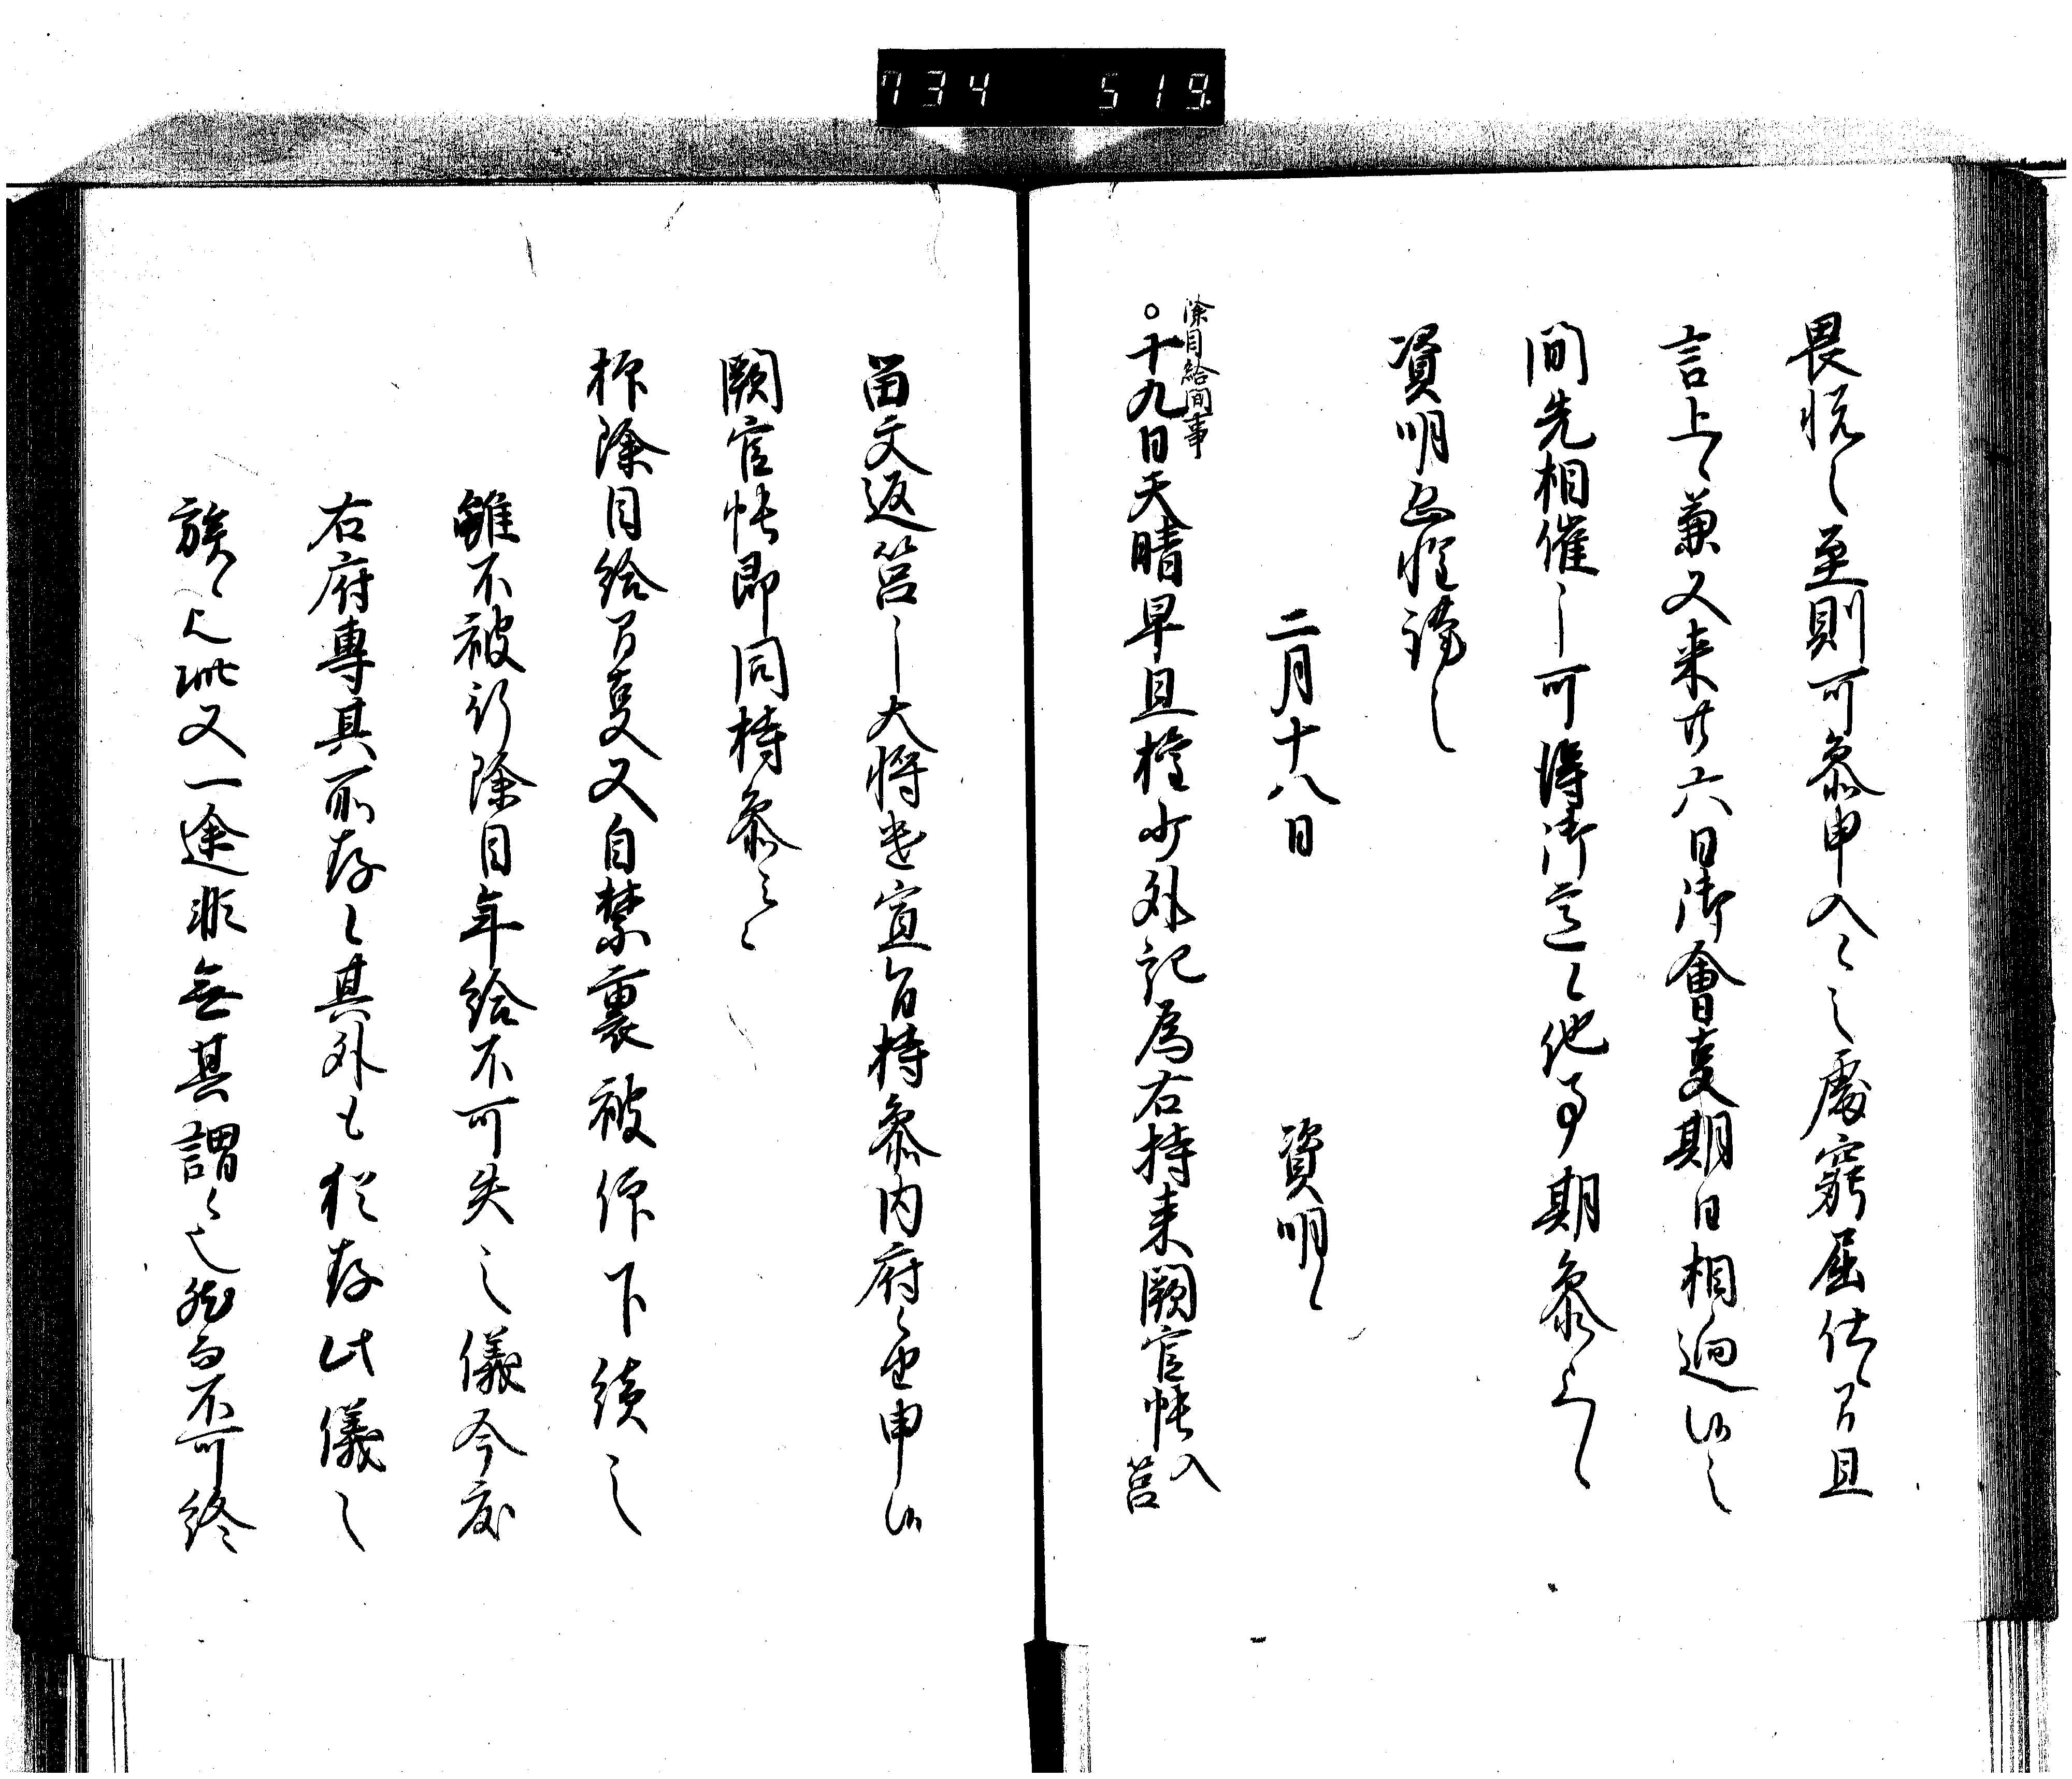 734 519.
畏悦之至則可参申入候之處窮屈仕候間且
言上候兼又来廿六日御會事期日相迫候之
間先相催之可得御意候他事期参上候
資明恐惶謹言
二月十八日 資明
除目給間事
○十九日天晴早旦権少外記為右持来闕官帳入筥
留文返筥大将宣旨持参内府申候
闕官帳即同持参云々
抑除目給間事又自禁裏被仰下続之
雖不被行除目年給不可失之儀今度
右府専其所存候其外も猶存此儀之
族候此又一途非無其謂候然而不可終